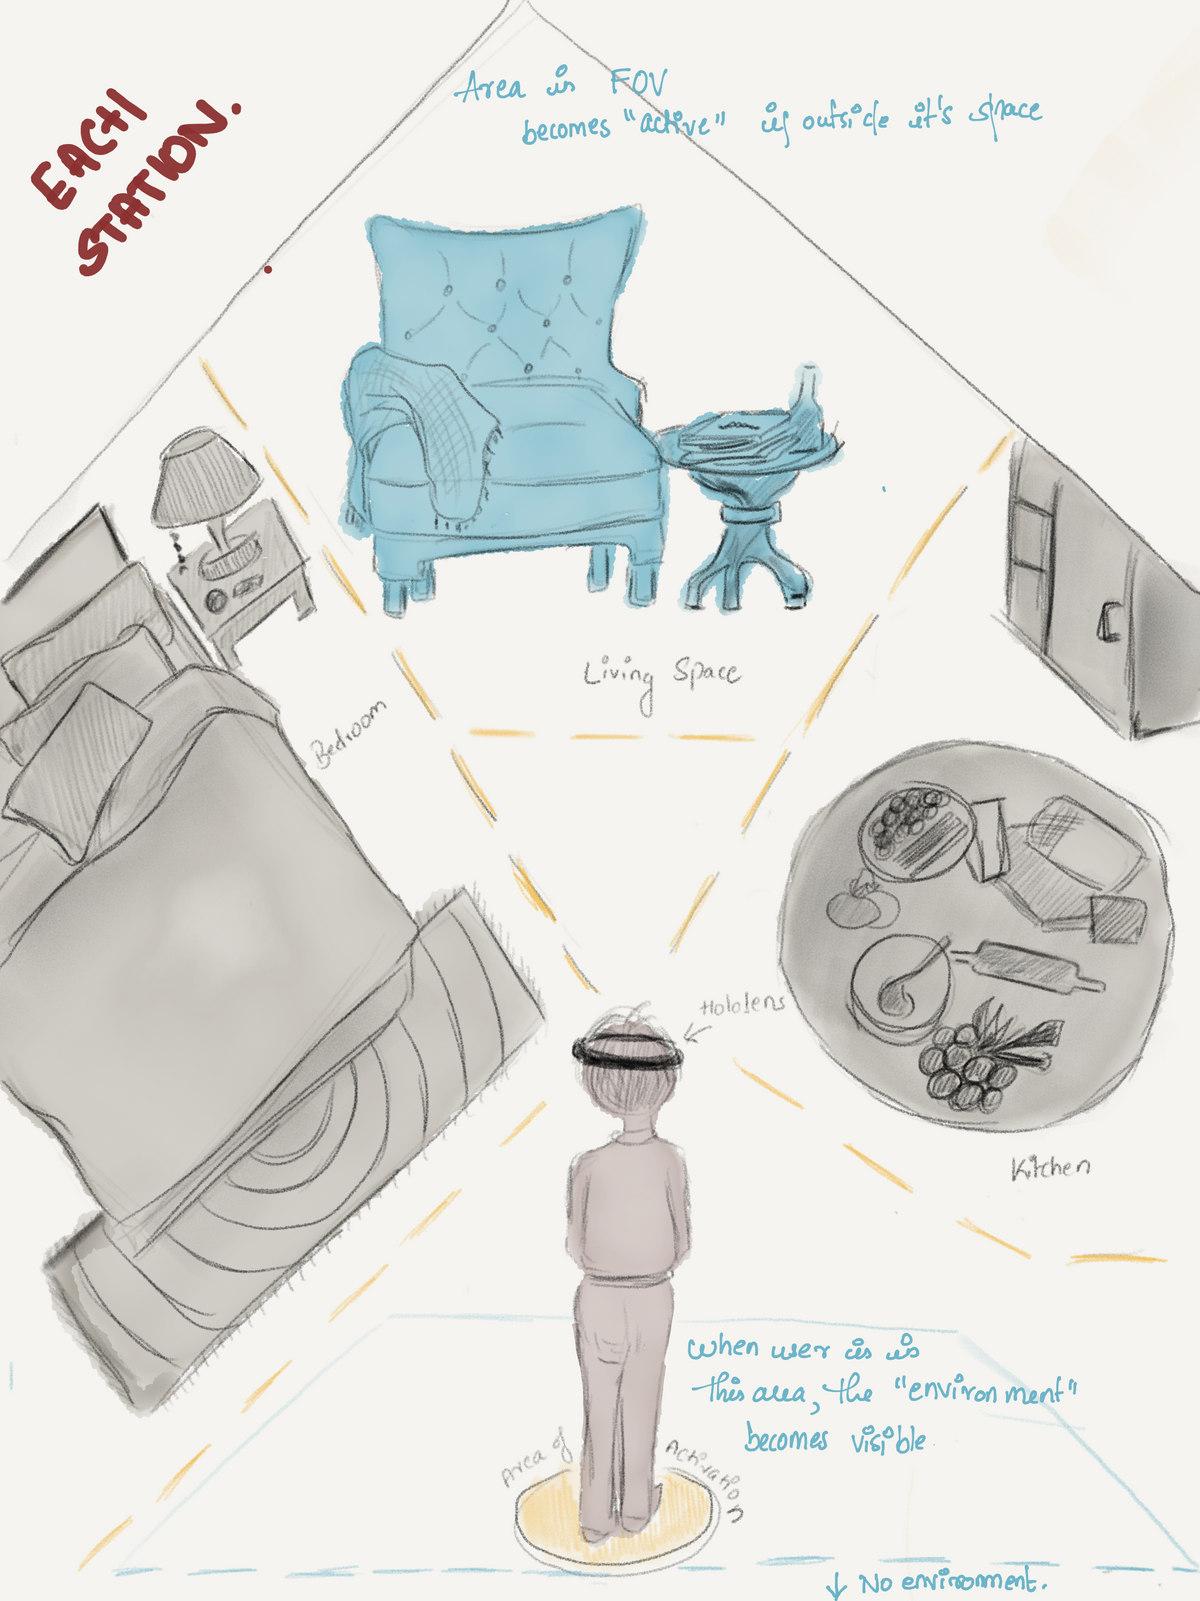 EACH
STATION.
Area is FOV
becomes "active" if outside it's space
Living Space
Bedroom
Hololens
Kitchen
When user is is
this area, the "environment"
becomes visible
Area of Activation
↓ No environment.